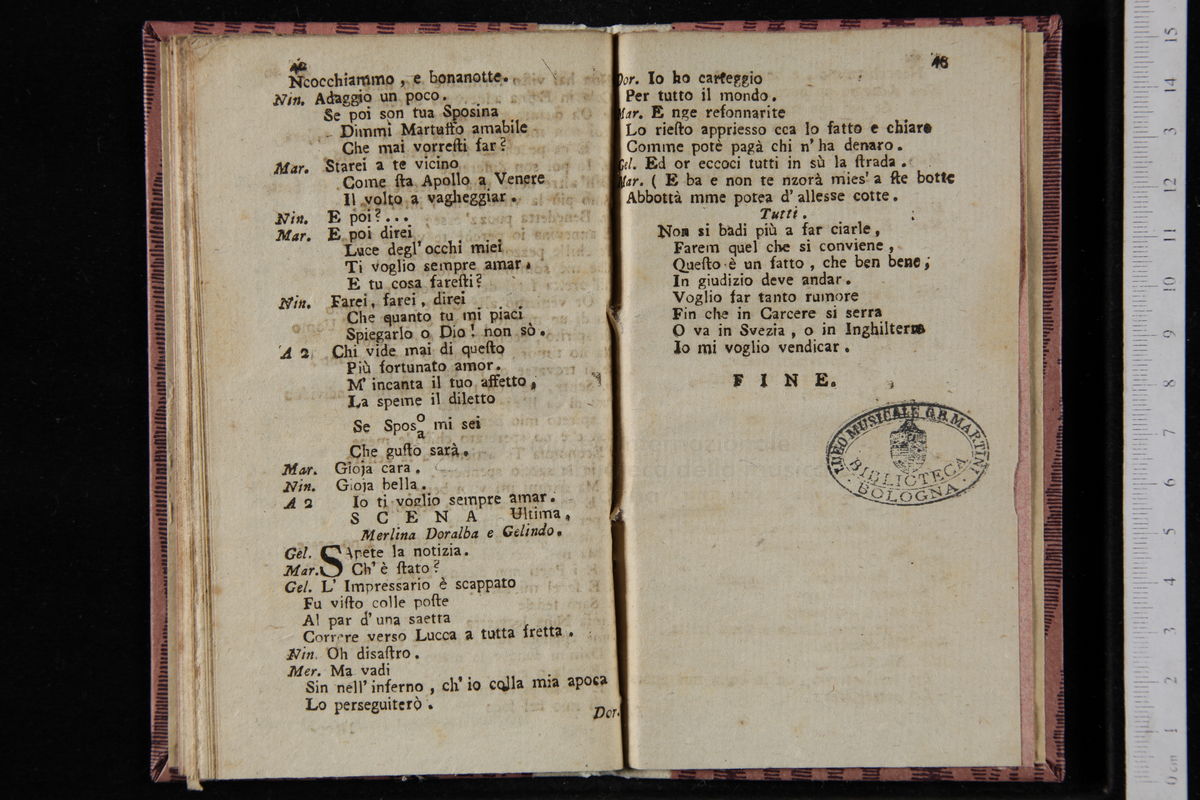 42
Ncocchiammo, e bonanotte.
Nin. Adaggio un poco.
Se poi son tua Sposina
Dimmi Martuffo amabile
Che mai vorreſti far?
Mar. Starei a te vicino
Come ſta Apollo a Venere
Il volto a vagheggiar.
Nin. E poi?...
Mar. E poi direi
Luce degl' occhi miei
Ti voglio sempre amar.
E tu cosa fareſti?
Nin. Farei, farei, direi
Che quanto tu mi piaci
Spiegarlo o Dio! non sò.
A 2 Chi vide mai di queſto
Più fortunato amor.
M' incanta il tuo affetto,
La speme il diletto
Se Spos o/a mi sei
Che guſto sarà.
Mar. Gioja cara.
Nin. Gioja bella.
A 2 Io ti voglio sempre amar.
SCENA Ultima,
Merlina Doralba e Gelindo.
Gel. SApete la notizia.
Mar. Ch' è ſtato?
Gel. L' Impressario è scappato
Fu viſto colle poſte
Al par d' una saetta
Correre verso Lucca a tutta fretta.
Nin. Oh disaſtro.
Mer. Ma vadi
Sin nell' inferno, ch' io colla mia apoca
Lo perseguiterò.
Dor.
43
Dor. Io ho carteggio
Per tutto il mondo.
Mar. E nge refonnarite
Lo rieſto appriesso cca lo fatto e chiaro
Comme potè pagà chi n' ha denaro.
Gel. Ed or eccoci tutti in sù la ſtrada.
Mar. ( E ba e non te nzorà mies' a ſte botte
Abbottà mme potea d' allesse cotte.
Tutti.
Non si badi più a far ciarle,
Farem quel che si conviene,
Queſto è un fatto, che ben bene,
In giudizio deve andar.
Voglio far tanto rumore
Fin che in Carcere si serra
O va in Svezia, o in Inghilterra
Io mi voglio vendicar.
FINE.
LICEO MUSICALE G.B. MARTINI
BIBLIOTECA
BOLOGNA